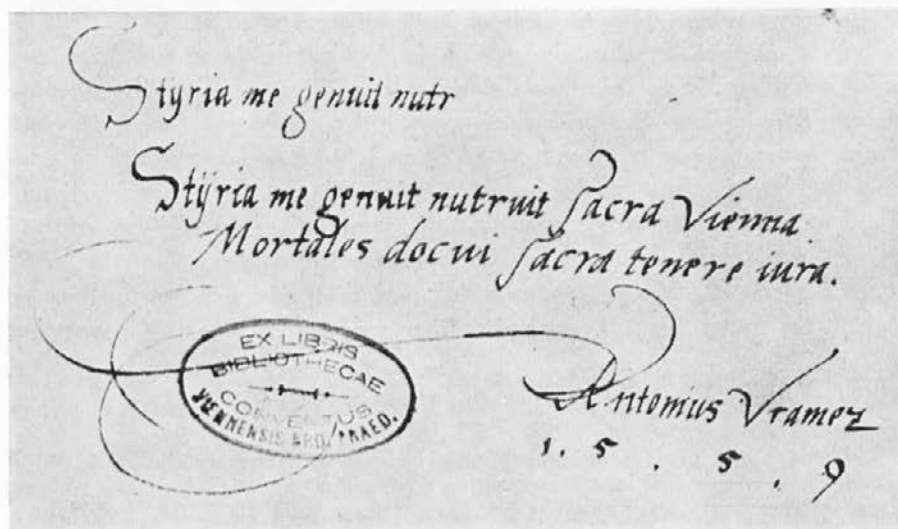 Stÿria me genuit nutr
Stÿria me genuit nutruit sacra Vienna
Mortales docui sacra tenere iura.
EX LIBRIS
BIBLIOTHECAE
CONVENTUS
VIENNENSIS ORD. PRAED.
Antonius Vramez
1. 5. 5. 9